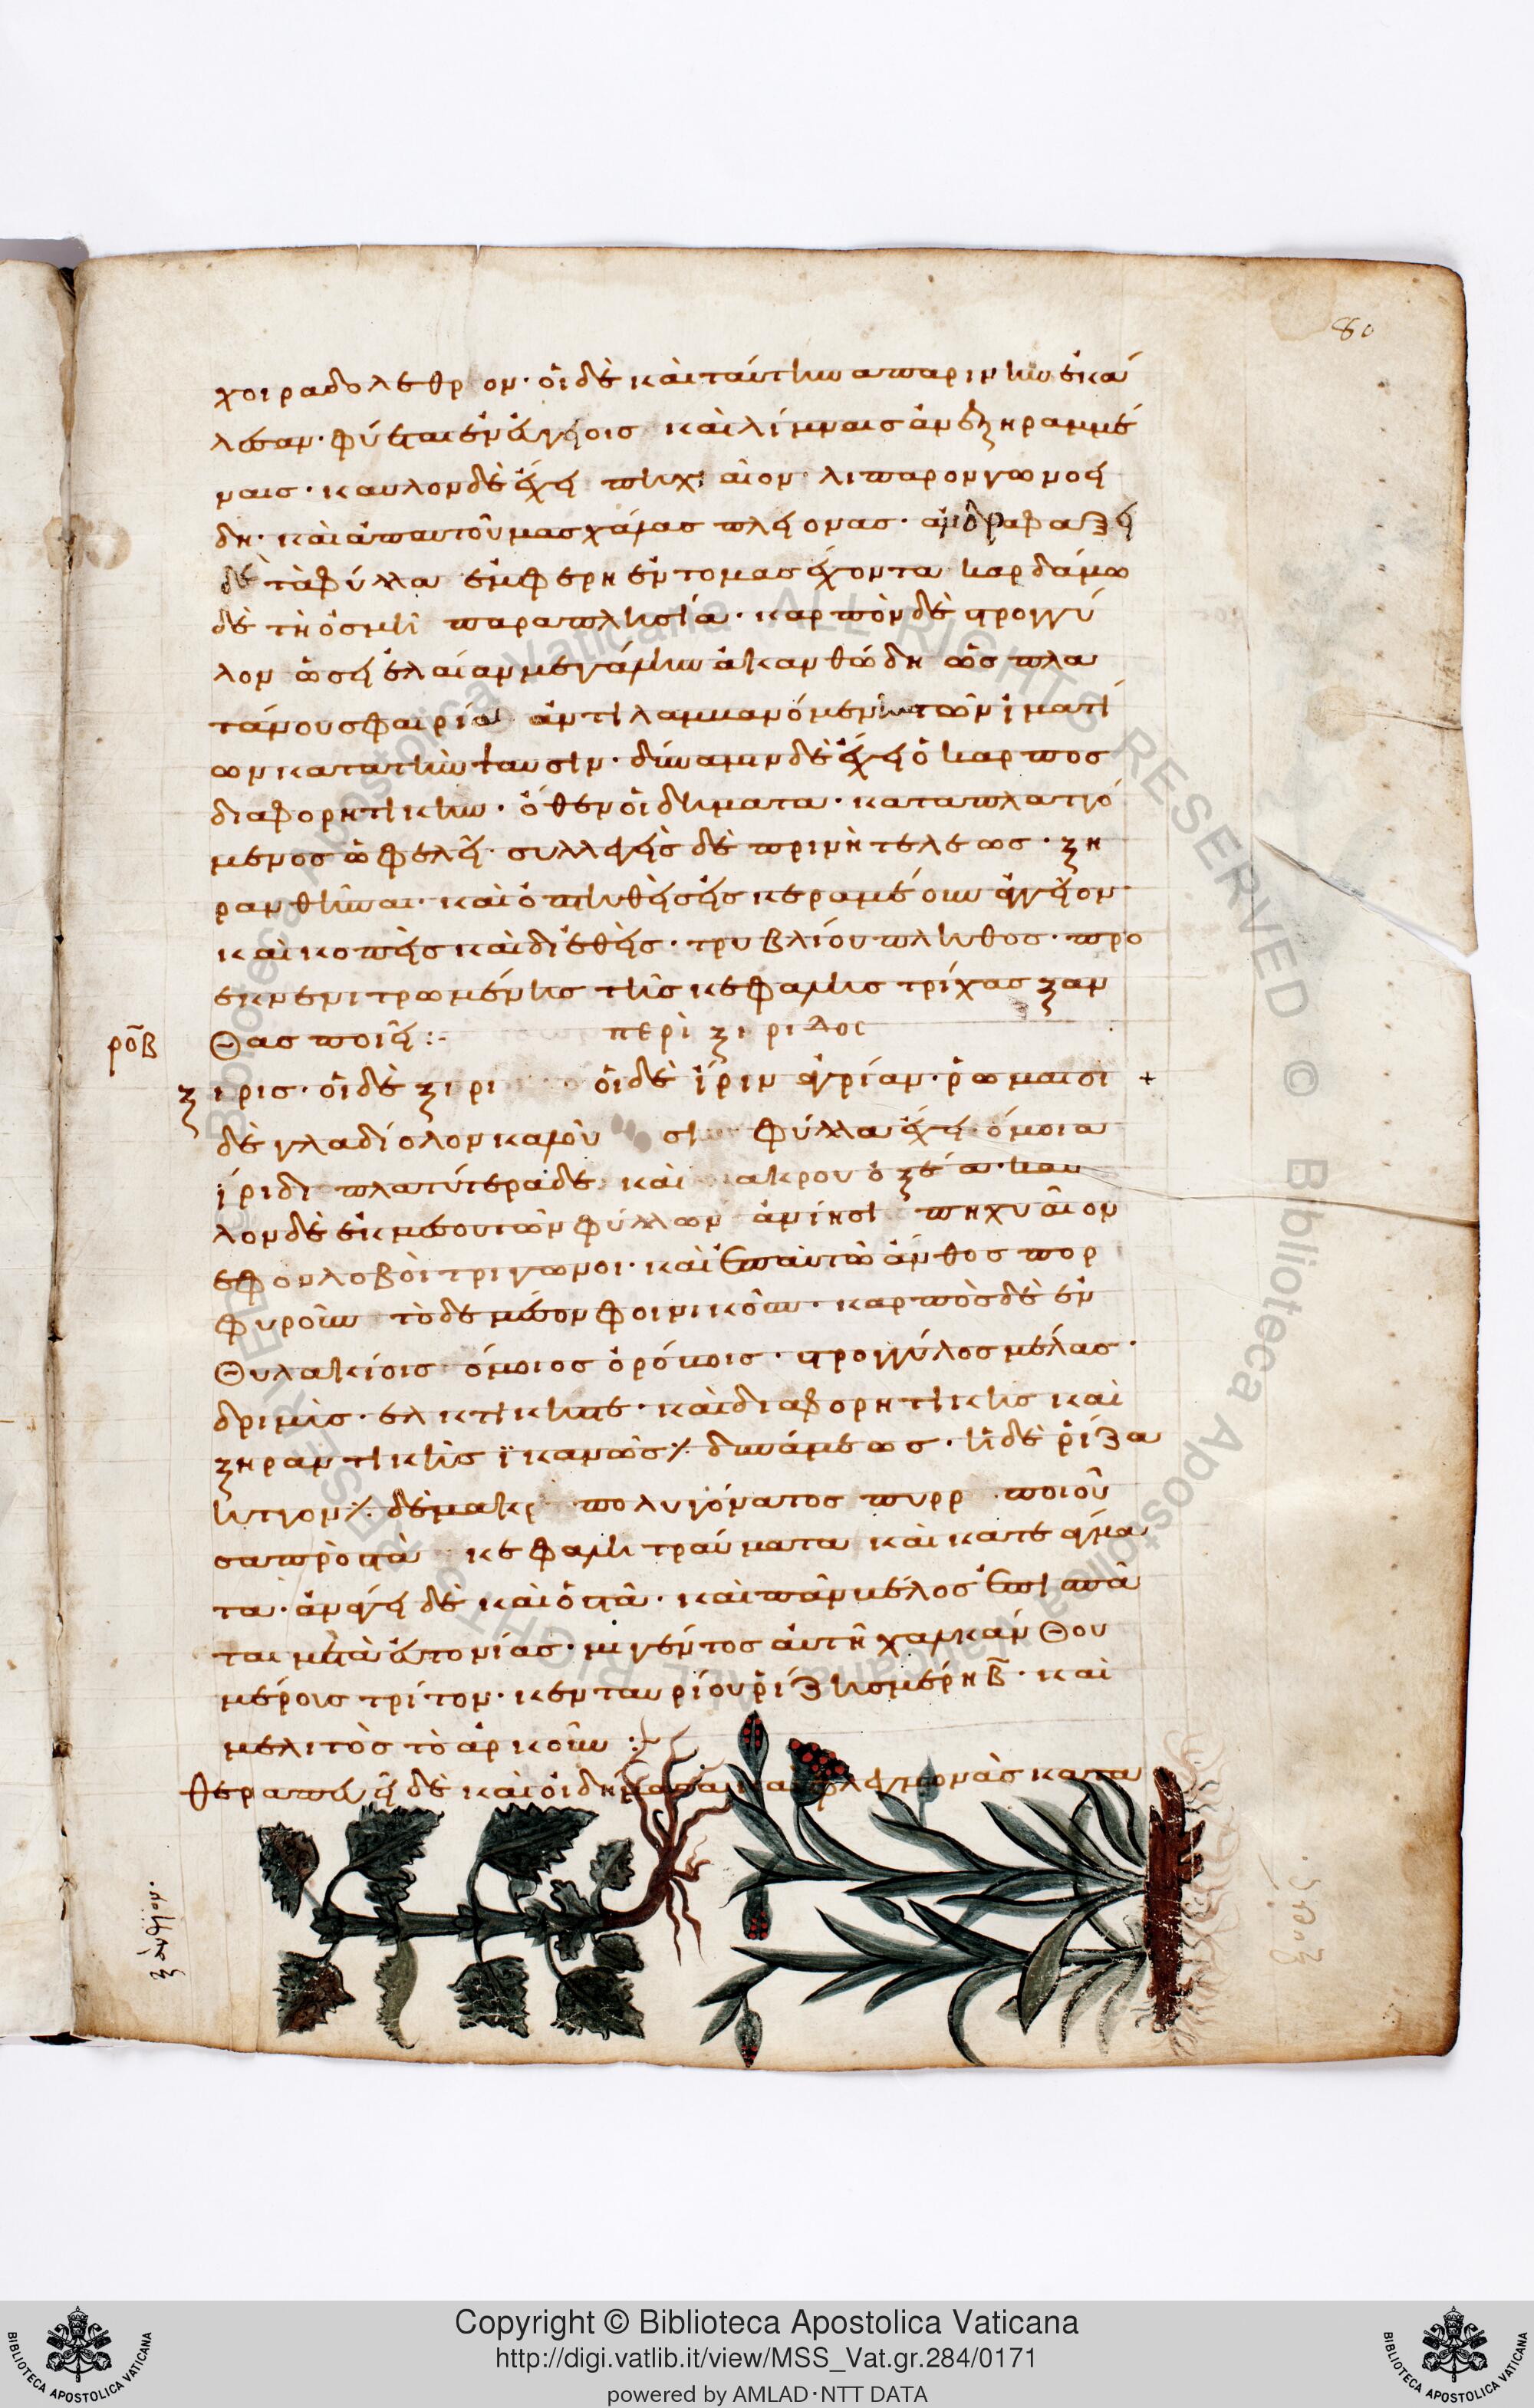 80
χοιραδολεθρον· οἱ δὲ καὶ ταύτην απαρινην ἐκά
λεσαν· φύεται ἐν εὐγείοις καὶ λίμναις ἀνεξηραμμέ
ναις· καυλον δὲ ἔχει πηχυαῖον λιπαρον γωνοει
δη· καὶ ἐπ αυτοῦ μασχάλας πλείονας· ἀνδραφαξει
δὲ τὰ φύλλα εμφερη ἐντομας ἔχοντα καρδάμω
δὲ τῆ ὀσμῆ παραπλησία· καρπὸν δὲ στρογγύ
λον ὡσεὶ ἐλαίαν μεγάλην ἀκανθώδη ὡς πλα
τάνου σφαιρία ἀντιλαμμανόμενην τῶν ἱματί
ων κατα την ψαυσιν· δύναμιν δὲ ἔχει ὁ καρπος
διαφορητικην· ὅθεν οἰδηματα· καταπλασσό
μενος ὠφελεῖ· συλλεγεὶς δὲ πρινὴ τελεως· ξη
ρανθῆναι· καὶ
και κοπεὶς καὶ τρυβλίου πληθος· προ
εκνενιτρωμένης τῆς κεφαλης τρίχας ξαν
θας ποιεῖ:-
περὶ ξιριδος
ροβ
ξιρις· οἱ δὲ ξιρι οἱ δὲ ἴριν ἀγρίαν· ῥωμαιοι +
δὲ γλαδίολον καλοῦ σιν φύλλα ἔχει ὅμοια
ἴριδι πλατύτερα δε καὶ ακρου ὀξέα· καυ
λον δὲ ἐκ μέσου τῶν φύλλων ἀνίησι πηχυαῖον
εφ ον λοβοὶ τριγωνοι· καὶ ἐπ αὐτῶ ἄνθος πορ
φυροῦν τὸ δε μέσον φοινικοῦν· καρπὸς δὲ ἐν
θυλακίοις ὅμοιος ὀρόβοις· στρογγύλος μέλας·
δριμὺς· ελκτικης τε· καὶ διαφορητικης καὶ
ξηραντικῆς ἱκανῶς δυνάμεως· ἡ δὲ ῥίζα
δὲ μακρ πολυγόνατος πυρρ ποιοῦ
σα πρὸς τὰ κεφαλῆ τραύματα καὶ κατεάγμα
τα· ἀνάγει δὲ καὶ ὀστᾶ· καὶ πᾶν μέλος ἐπισπᾶ
ται μετὰ εὐτονίας· μιγέντος ἀυτῆ χαλκάνθου
μέροις τρίτον· κενταυρίου ῥίζης μέρη β· καὶ
μέλιτὸς τὸ ἀρκοῦν :
θεραπεύει δὲ καὶ οἰδήματα καὶ φλεγμονὰς κατα
ξάνθιον·
Copyright © Biblioteca Apostolica Vaticana
http://digi.vatlib.it/view/MSS_Vat.gr.284/0171
powered by AMLAD·NTT DATA
BIBLIOTECA APOSTOLICA VATICANA
BIBLIOTECA APOSTOLICA VATICANA
Biblioteca Apostolica Vaticana ALL RIGHTS RESERVED © Biblioteca Apostolica Vaticana ALL RIGHTS RESERVED ©